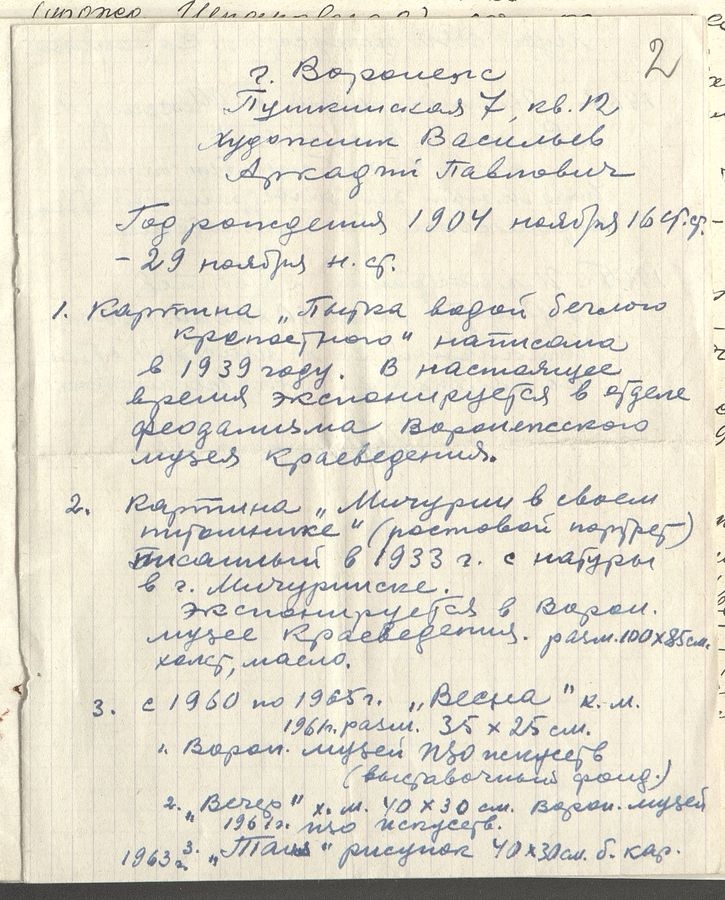 2
г. Воронеж
Пушкинская 7, кв. 12
Художник Васильев
Аркадий Павлович
Год рождения 1904 ноября 16 ст. ст. -
- 29 ноября н. ст.
1. Картина „Пытка водой беглого
крепостного" написана
в 1939 году. В настоящее
время экспонируется в отделе
феодализма Воронежского
музея краеведения.
2. Картина „Мичурин в своем
питомнике" (ростовой портрет)
писанный в 1933 г. с натуры
в г. Мичуринске.
Экспонируется в Ворон.
музее краеведения. разм. 100 х 85 см.
холст, масло.
3. с 1960 по 1965 г. „Весна" х. м.
1961 г. разм. 35 х 25 см.
1. Ворон. музей изо искусств
(выставочный фонд.)
2. „Вечер" х. м. 40 х 30 см. Ворон. музей
1961 г. изо искусств.
1963 г. 3. „Таня" рисунок 40 х 30 см. б. кар.